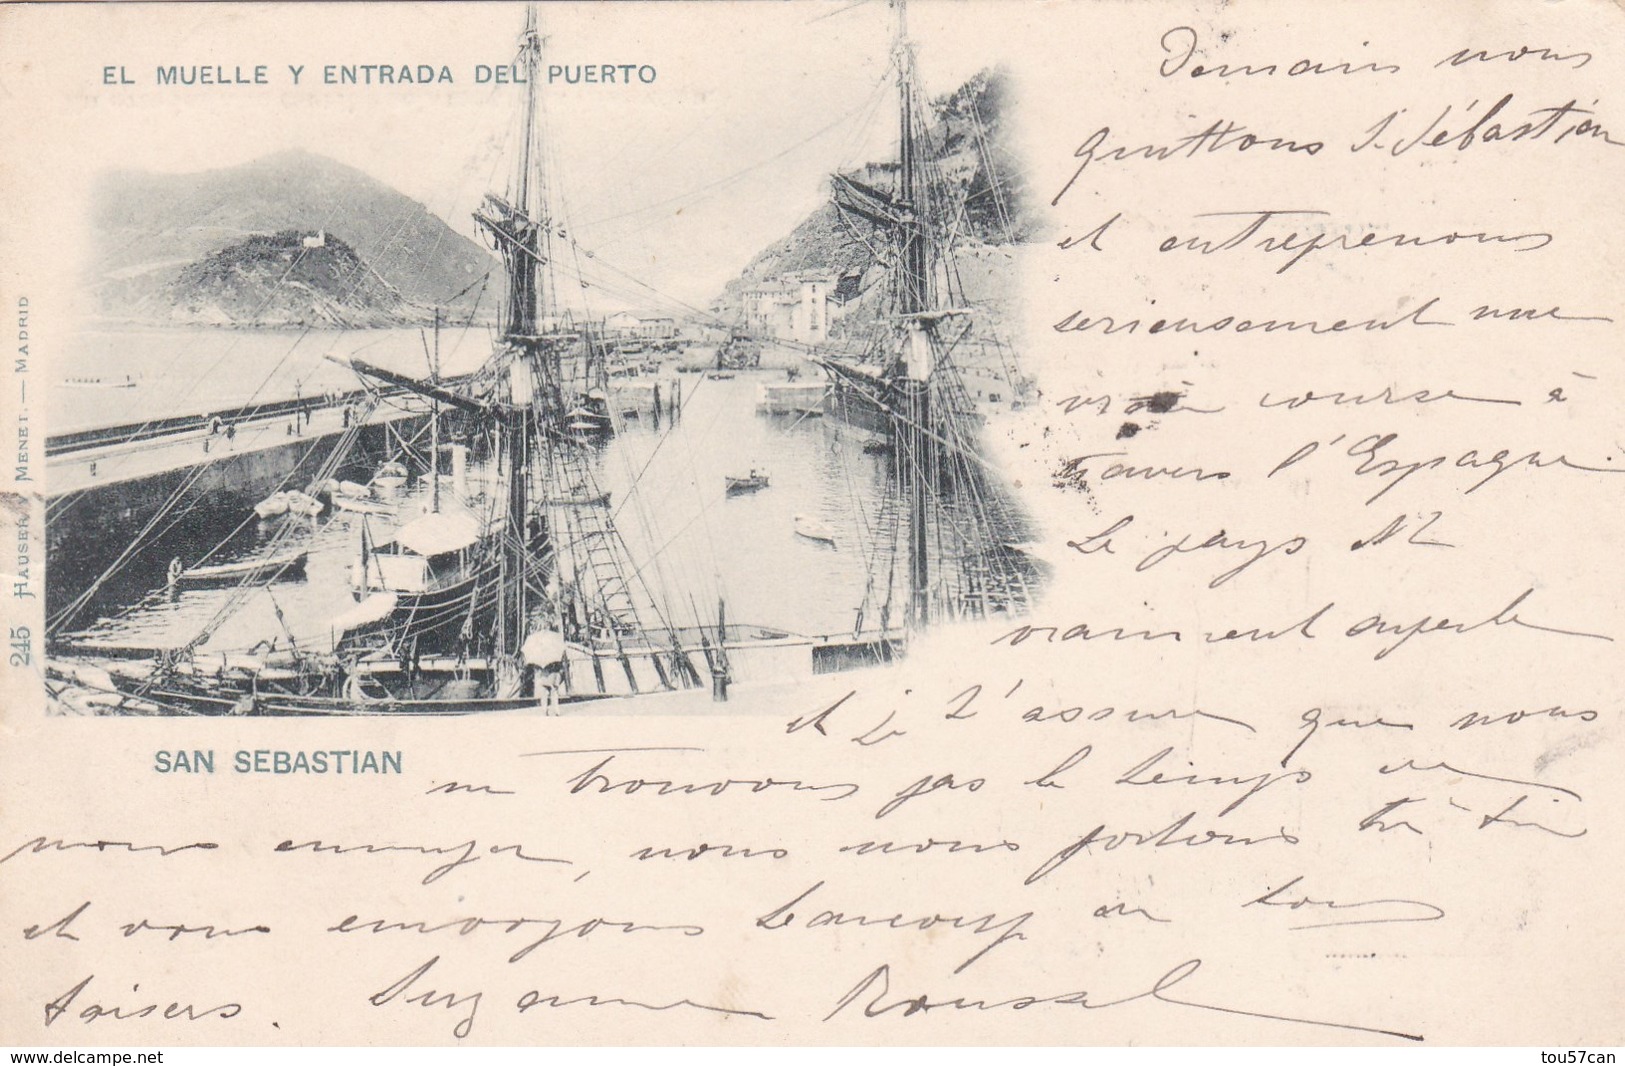 EL MUELLE Y ENTRADA DEL PUERTO
Demain nous
quittons St Sébastien
et entreprenons
serieusement une
vraie course à
travers l'Espagne.
Le pays est
vraiment superbe
et je t'assure que nous
ne trouvons pas le temps de
nous ennuyer, nous nous portons très bien
et vous envoyons beaucoup de bons
baisers. Suzanne Roussel
SAN SEBASTIAN
245 HAUSER Y MENET.— MADRID
www.delcampe.net
tou57can